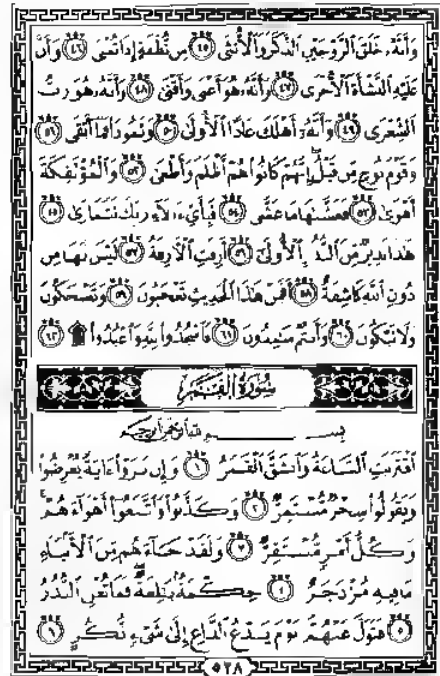 وَأَنَّهُۥ خَلَقَ ٱلزَّوۡجَيۡنِ ٱلذَّكَرَ وَٱلۡأُنثَىٰ ٤٥ مِن نُّطۡفَةٍ إِذَا تُمۡنَىٰ ٤٦ وَأَنَّ
عَلَيۡهِ ٱلنَّشۡأَةَ ٱلۡأُخۡرَىٰ ٤٧ وَأَنَّهُۥ هُوَ أَغۡنَىٰ وَأَقۡنَىٰ ٤٨ وَأَنَّهُۥ هُوَ رَبُّ
ٱلشِّعۡرَىٰ ٤٩ وَأَنَّهُۥٓ أَهۡلَكَ عَادًا ٱلۡأُولَىٰ ٥٠ وَثَمُودَاْ فَمَآ أَبۡقَىٰ ٥١
وَقَوۡمَ نُوحٖ مِّن قَبۡلُۖ إِنَّهُمۡ كَانُواْ هُمۡ أَظۡلَمَ وَأَطۡغَىٰ ٥٢ وَٱلۡمُؤۡتَفِكَةَ
أَهۡوَىٰ ٥٣ فَغَشَّىٰهَا مَا غَشَّىٰ ٥٤ فَبِأَيِّ ءَالَآءِ رَبِّكَ تَتَمَارَىٰ ٥٥
هَٰذَا نَذِيرٞ مِّنَ ٱلنُّذُرِ ٱلۡأُولَىٰٓ ٥٦ أَزِفَتِ ٱلۡأٓزِفَةُ ٥٧ لَيۡسَ لَهَا مِن
دُونِ ٱللَّهِ كَاشِفَةٌ ٥٨ أَفَمِنۡ هَٰذَا ٱلۡحَدِيثِ تَعۡجَبُونَ ٥٩ وَتَضۡحَكُونَ
وَلَا تَبۡكُونَ ٦٠ وَأَنتُمۡ سَٰمِدُونَ ٦١ فَٱسۡجُدُواْۤ لِلَّهِۤ وَٱعۡبُدُواْ ۩ ٦٢
سُورَةُ القَمَرِ
بِسۡمِ ٱللَّهِ ٱلرَّحۡمَٰنِ ٱلرَّحِيمِ
ٱقۡتَرَبَتِ ٱلسَّاعَةُ وَٱنشَقَّ ٱلۡقَمَرُ ١ وَإِن يَرَوۡاْ ءَايَةٗ يُعۡرِضُواْ
وَيَقُولُواْ سِحۡرٞ مُّسۡتَمِرّٞ ٢ وَكَذَّبُواْ وَٱتَّبَعُوٓاْ أَهۡوَآءَهُمۡۚ
وَكُلُّ أَمۡرٖ مُّسۡتَقِرّٞ ٣ وَلَقَدۡ جَآءَهُم مِّنَ ٱلۡأَنۢبَآءِ
مَا فِيهِ مُزۡدَجَرٌ ٤ حِكۡمَةُۢ بَٰلِغَةٞۖ فَمَا تُغۡنِ ٱلنُّذُرُ
٥ فَتَوَلَّ عَنۡهُمۡۘ يَوۡمَ يَدۡعُ ٱلدَّاعِ إِلَىٰ شَيۡءٖ نُّكُرٍ ٦
٥٢٨